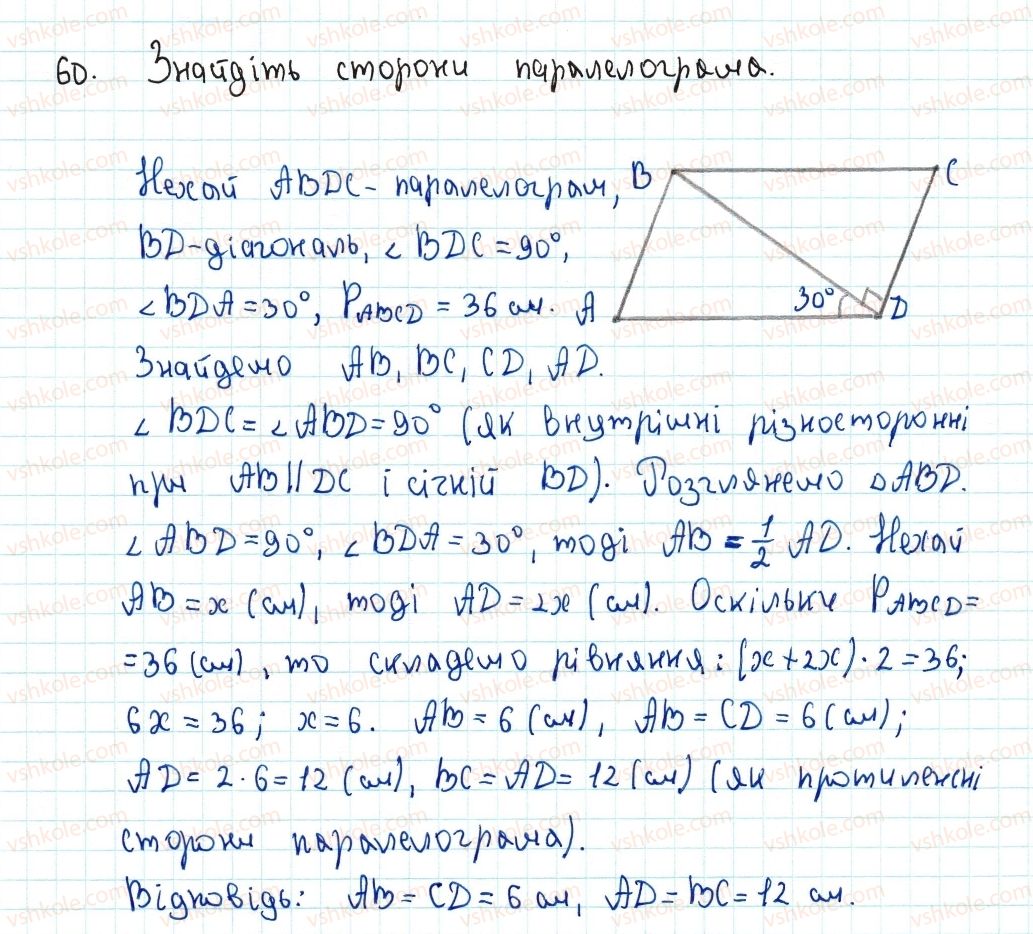 60. Знайдіть сторони паралелограма.
Нехай ABDC - паралелограм,
BD - діагональ, ∠BDC = 90°,
∠BDA = 30°, P_ABCD = 36 см.
Знайдемо AB, BC, CD, AD.
∠BDC = ∠ABD = 90° (як внутрішні різносторонні
при AB || DC і січній BD). Розглянемо ΔABD.
∠ABD = 90°, ∠BDA = 30°, тоді AB = 1/2 AD. Нехай
AB = x (см), тоді AD = 2x (см). Оскільки P_ABCD =
= 36 (см), то складемо рівняння: (x + 2x) · 2 = 36;
6x = 36; x = 6. AB = 6 (см), AB = CD = 6 (см);
AD = 2 · 6 = 12 (см), BC = AD = 12 (см) (як протилежні
сторони паралелограма).
Відповідь: AB = CD = 6 см, AD = BC = 12 см.
B
C
A
30°
D
vshkole.com